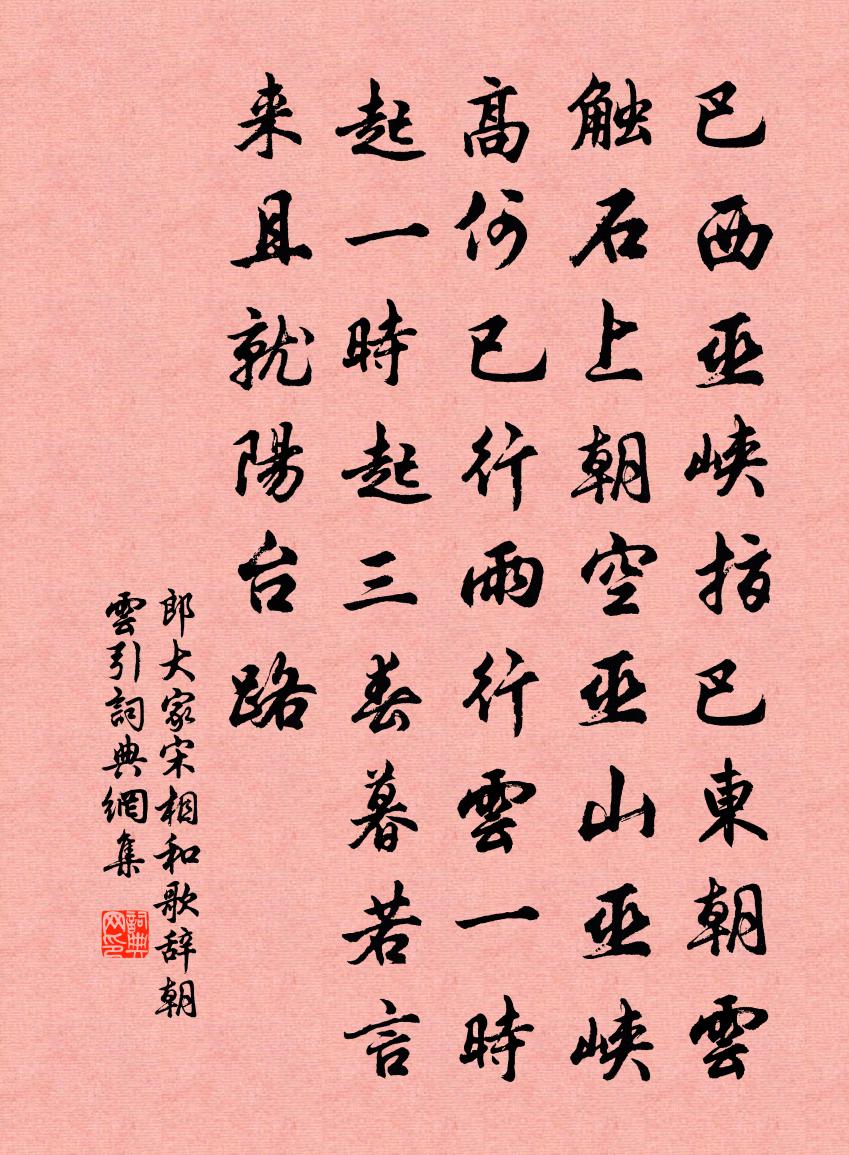 巴西巫峡指巴東朝雲
触石上朝空巫山巫峡
高何已行雨行雲一時
起一時起三春暮若言
来且就陽台路
郎大家宋相和歌辞朝
雲引詞典網集
詞典
网印